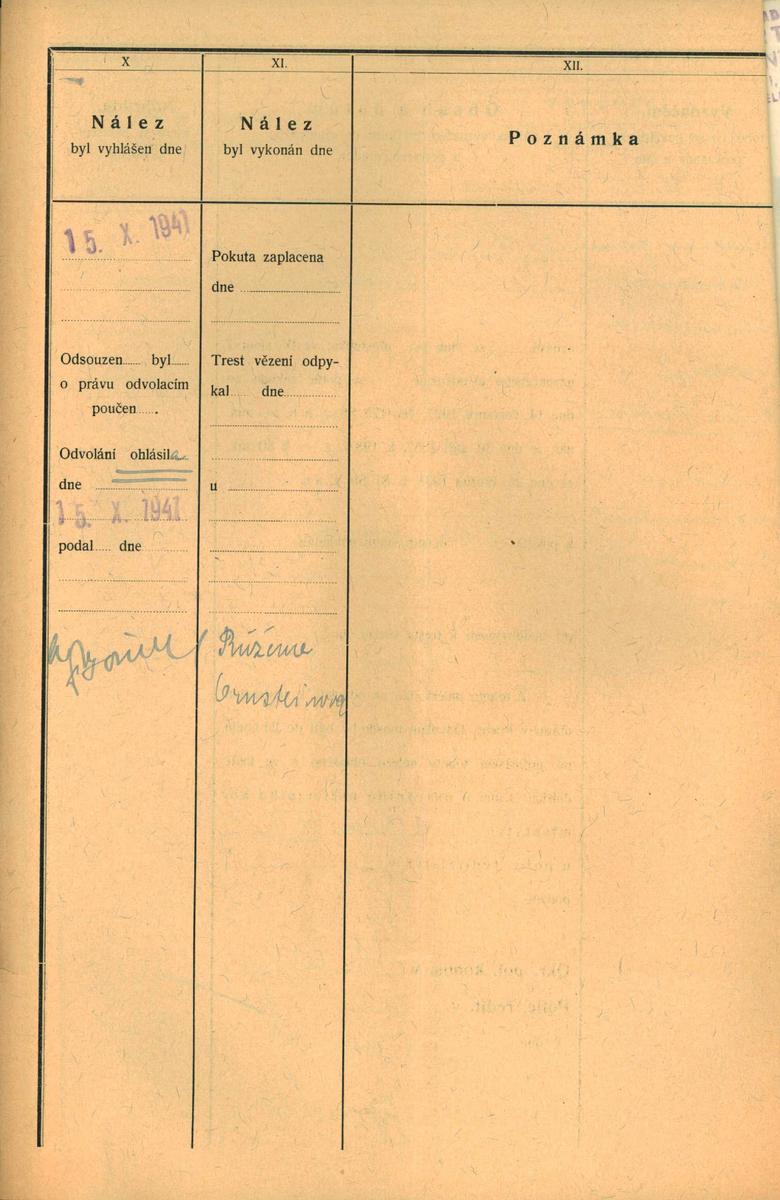 X
Nález
byl vyhlášen dne
15. X. 1941
Odsouzen...... byl......
o právu odvolacím
poučen......
Odvolání ohlásila
dne
15. X. 1941
podal..... dne
XI.
Nález
byl vykonán dne
Pokuta zaplacena
dne
Trest vězení odpy-
kal dne
u
Růžena
Ornsteinová
XII.
Poznámka